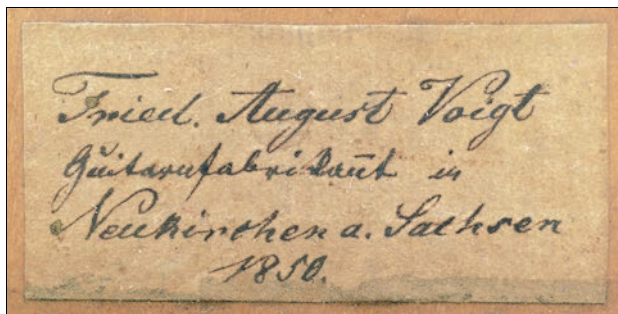 Fried. August Voigt
Guitarnfabrikant in
Neukirchen a. Sachsen
1850.